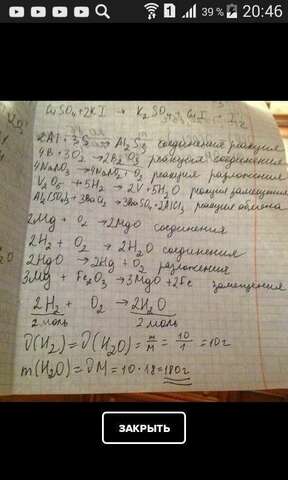 39 % 20:46
CuSO₄+2KI → K₂SO₄
2Al + 3S → Al₂S₃ соединения реакция
4B + 3O₂ → 2B₂O₃ реакция соединения
реакция разложения
V₂O₅ + 5H₂ → 2V + 5H₂O реакция замещения
реакция обмена
2Mg + O₂ → 2MgO соединения
2H₂ + O₂ → 2H₂O соединения
2HgO → 2Hg + O₂ разложения
3Mg + Fe₂O₃ → 3MgO + 2Fe замещения
2H₂ + O₂ → 2H₂O
2 моль 2 моль
∂(H₂) = ∂(H₂O) = m/M = 10/1 = 10г
m(H₂O) = ∂M = 10·18 = 180г
ЗАКРЫТЬ